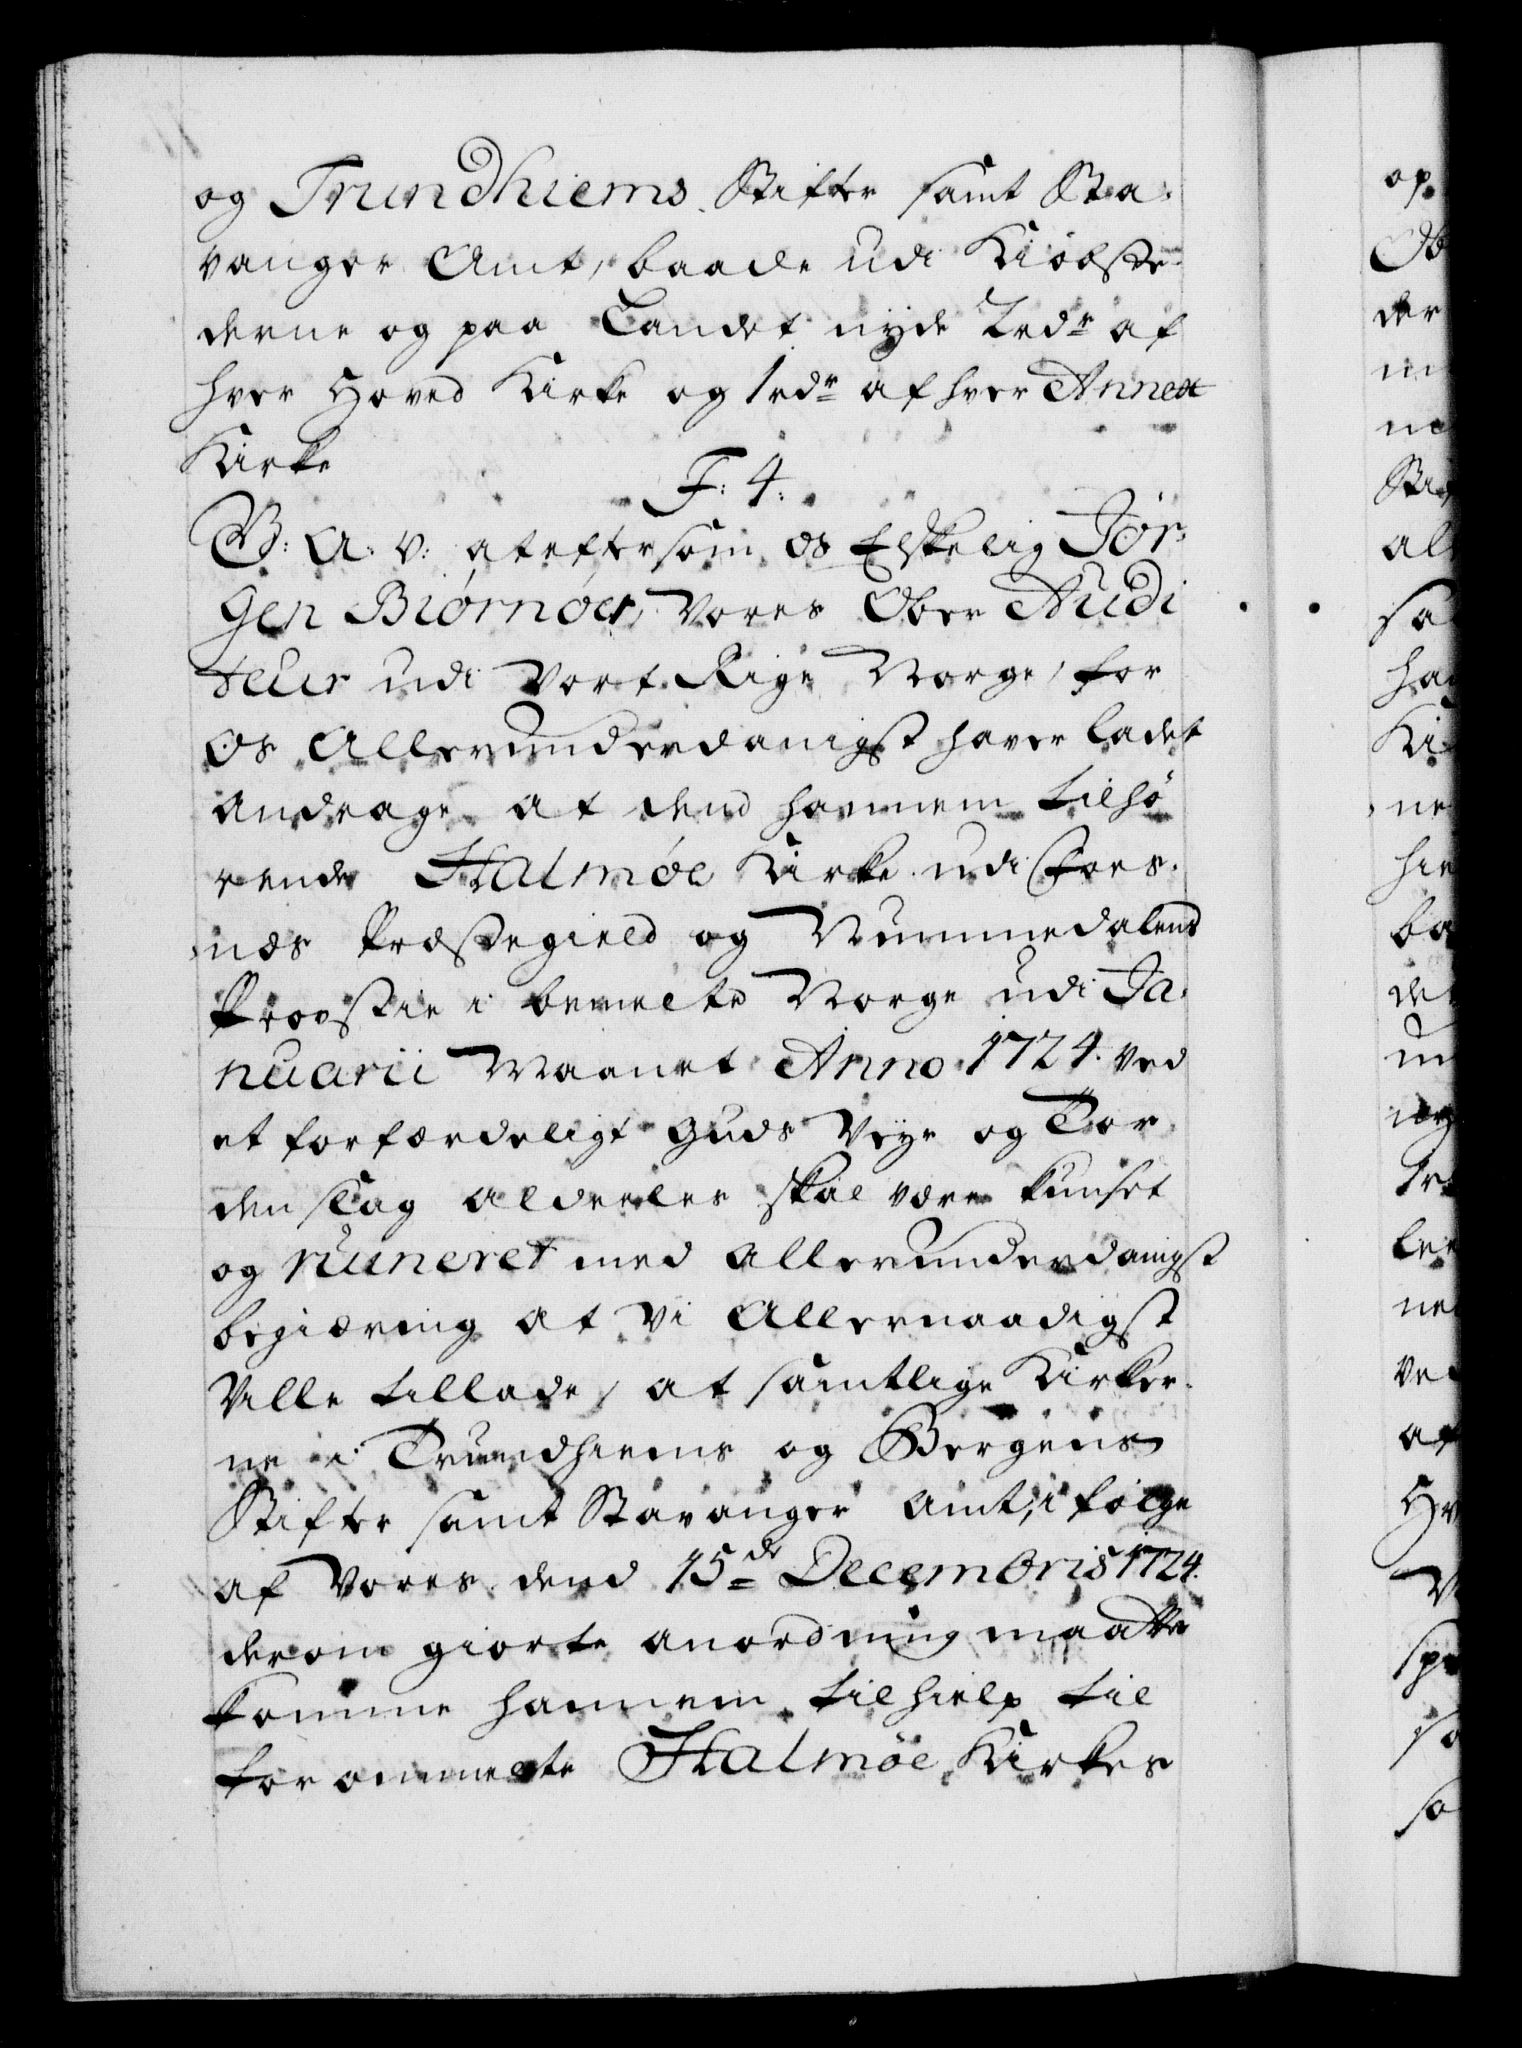 og Trundhiems Stifter samt Sta-
vanger Amt, baade udi Kiøbste-
derne og paa Landet nyde 2rdr af
hver Hoved Kirke og 1rdr af hver Annex
Kirke
F: 4:
G: A: V: at eftersom os Elskelig Jør-
gen Biørnøer, Vores Ober Audi
teur udi Vort Rige Norge, for
Os Allerunderdanigst haver ladet
andrage at dend hannem tilhø
rende Halmøe Kirke udi Fos-
næs Præstegield og Nummedalens
Provstie i bemelte Norge udi Ja-
nuarii Maanet Anno 1724. ved
et forfærdeligt Guds Veyr og Tor
denslag aldeeles skal være
og ruineret med allerunderdanigst
begiæring at Vi Allernaadigst
Ville tillade, at samtlige Kirker-
ne i Trundhiems og Bergens
Stifter samt Stavanger Amt, i følge
af Vores dend 15de Decembris 1724.
derom giorte anordning maatte
komme hannem til hielp til
forommelte Halmøe Kirkes